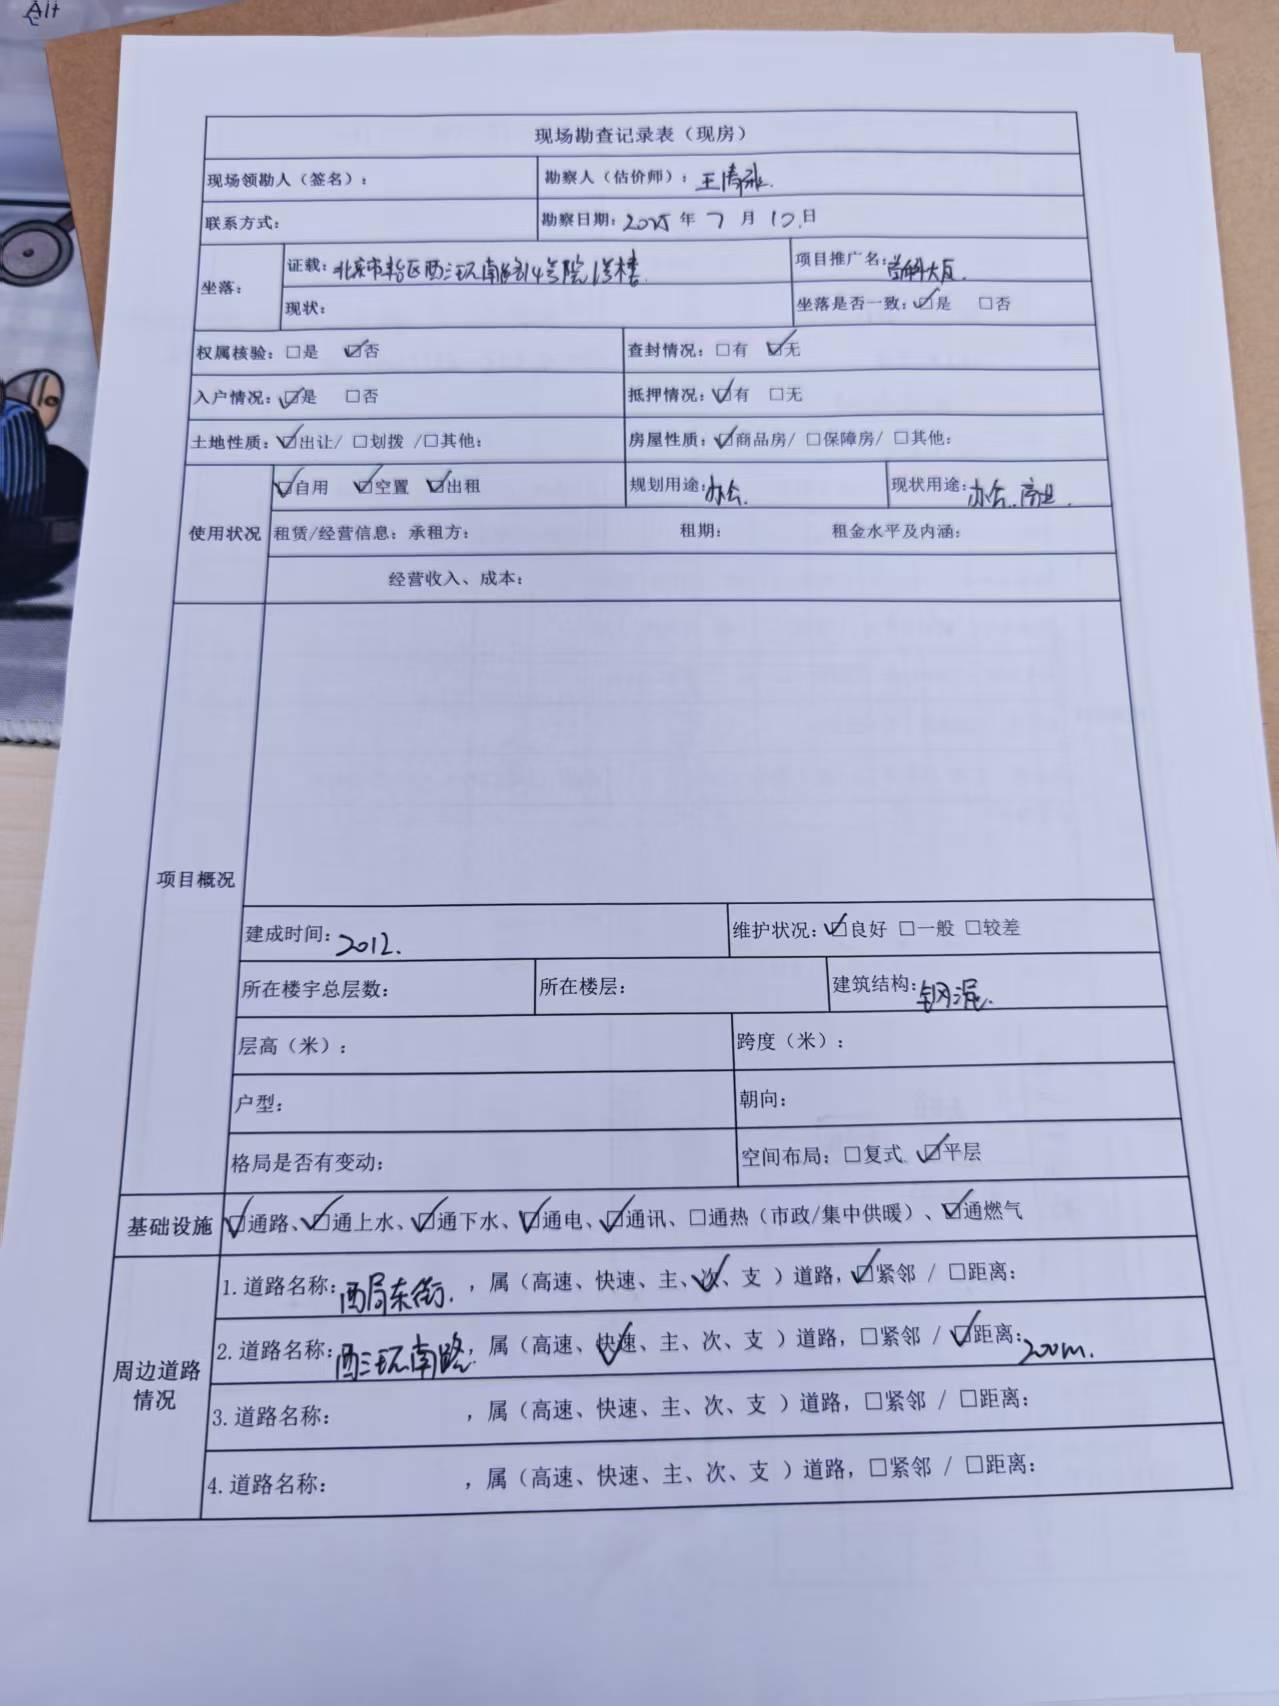 Alt
现场勘查记录表（现房）
现场领勘人（签名）： 勘察人（估价师）：王
联系方式： 勘察日期：2025年7月10日
坐落： 证载：北京市丰台区西三环南路14号院1号楼 项目推广名：首科大厦
现状： 坐落是否一致：☑是 □否
权属核验：□是 ☑否 查封情况：□有 ☑无
入户情况：☑是 □否 抵押情况：☑有 □无
土地性质：☑出让/ □划拨 /□其他： 房屋性质：☑商品房/ □保障房/ □其他：
使用状况 ☑自用 ☑空置 ☑出租 规划用途：办公. 现状用途：办公.商业.
租赁/经营信息：承租方： 租期： 租金水平及内涵：
经营收入、成本：
项目概况
建成时间：2012. 维护状况：☑良好 □一般 □较差
所在楼宇总层数： 所在楼层： 建筑结构：钢混.
层高（米）： 跨度（米）：
户型： 朝向：
格局是否有变动： 空间布局：□复式 ☑平层
基础设施 ☑通路、☑通上水、☑通下水、☑通电、☑通讯、□通热（市政/集中供暖）、☑通燃气
周边道路情况
1.道路名称：西局东街.，属（高速、快速、主、次✓、支 ）道路，☑紧邻 / □距离：
2.道路名称：西三环南路.，属（高速、快速✓、主、次、支 ）道路，□紧邻 / ☑距离：200m.
3.道路名称： ，属（高速、快速、主、次、支 ）道路，□紧邻 / □距离：
4.道路名称： ，属（高速、快速、主、次、支 ）道路，□紧邻 / □距离：